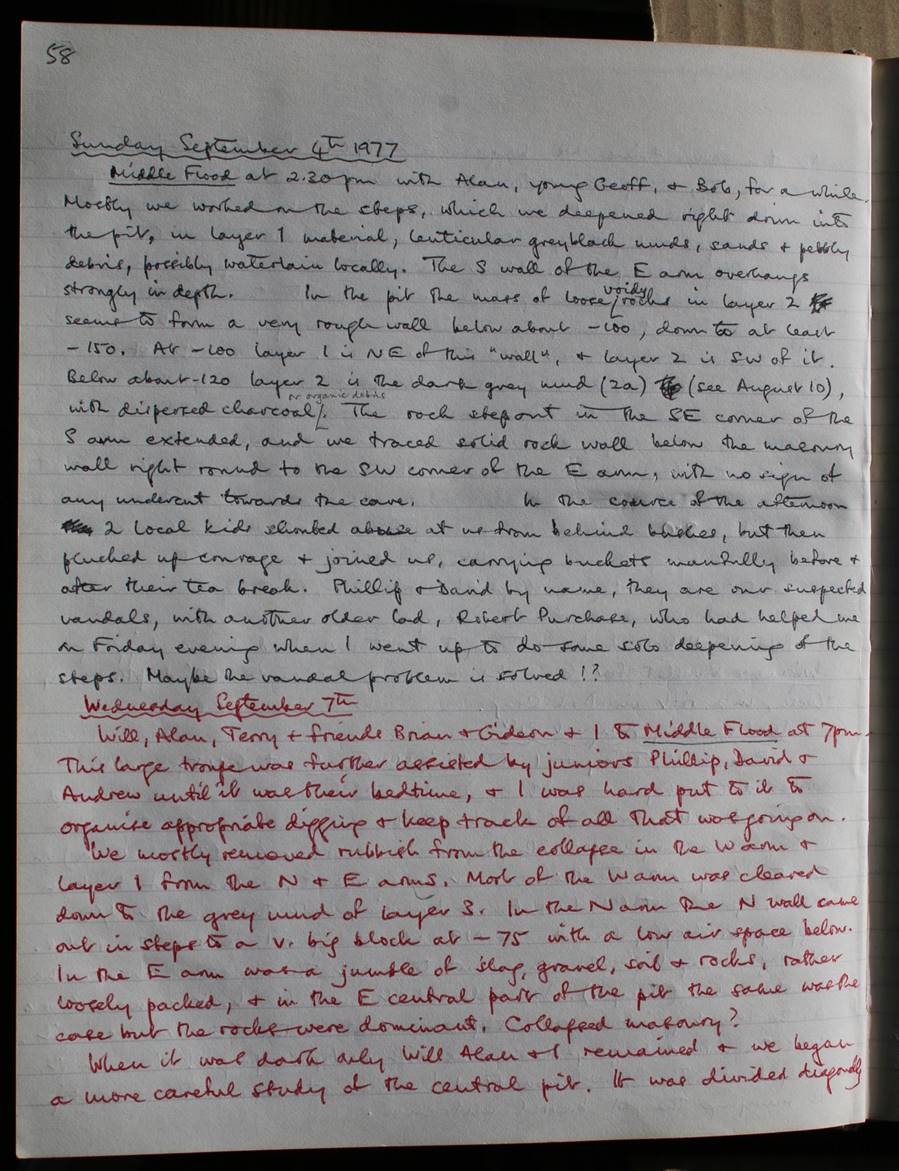 58
Sunday September 4th 1977
Middle Flood at 2.30pm with Alan, young Geoff, & Bob, for a while.
Mostly we worked on the steps, which we deepened right down into
the pit, in layer 1 material, lenticular greyblack muds, sands & pebbly
debris, possibly waterlain locally. The S wall of the E arm overhangs
strongly in depth. In the pit the mass of loose voidy rocks in layer 2
seems to form a very rough wall below about -100, down to at least
-150. At -100 layer 1 is NE of this "wall", & layer 2 is SW of it.
Below about -120 layer 2 is the dark grey mud (2a) (see August 10),
with dispersed charcoal or organic debris. The rock stepout in the SE corner of the
S arm extended, and we traced solid rock wall below the masonry
wall right round to the SW corner of the E arm, with no sign of
any undercut towards the cave. In the course of the afternoon
2 local kids shouted abuse at us from behind bushes, but then
plucked up courage & joined us, carrying buckets manfully before &
after their tea break. Phillip & David by name, they are our suspected
vandals, with another older lad, Robert Purchase, who had helped me
on Friday evening when I went up to do some solo deepening of the
steps. Maybe the vandal problem is solved!?
Wednesday September 7th
Will, Alan, Terry & friends Brian & Gideon & I to Middle Flood at 7pm.
This large troupe was further assisted by juniors Phillip, David &
Andrew until it was their bedtime, & I was hard put to it to
organise appropriate digging & keep track of all that was going on.
We mostly removed rubbish from the collapse in the W arm &
layer 1 from the N & E arms. Most of the W arm was cleared
down to the grey mud of layer 3. In the N arm the N wall came
out in steps to a v. big block at -75 with a low air space below.
In the E arm was a jumble of slag, gravel, soil & rocks, rather
loosely packed, & in the E central part of the pit the same was the
case but the rocks were dominant. Collapsed masonry?
When it was dark only Will Alan & I remained & we began
a more careful study of the central pit. It was divided diagonally